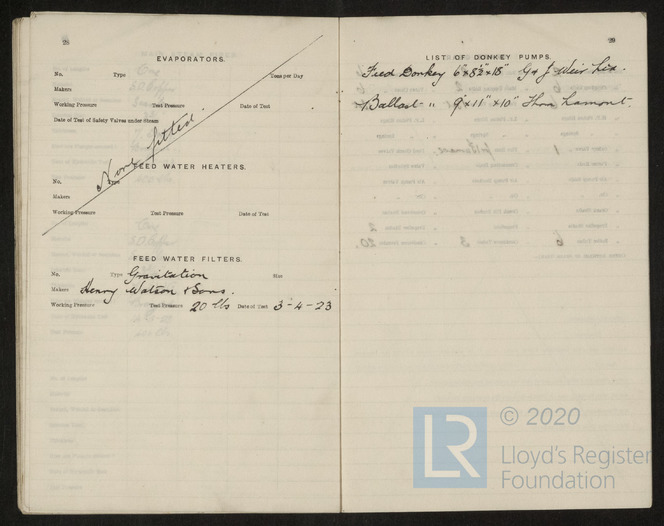 28
EVAPORATORS.
No. Type Tons per Day
Makers
Working Pressure Test Pressure Date of Test
Date of Test of Safety Valves under Steam
None fitted
FEED WATER HEATERS.
No. Type
Makers
Working Pressure Test Pressure Date of Test
FEED WATER FILTERS.
No. Type Gravitation Size
Makers Henry Watson & Sons.
Working Pressure Test Pressure 20 lbs Date of Test 3-4-23
29
LIST OF DONKEY PUMPS.
Feed Donkey 6"x8½"x18" G & J Weir
1 Ballast " 9"x11"x10" Thos Lamont.
LR © 2020
Lloyd's Register
Foundation